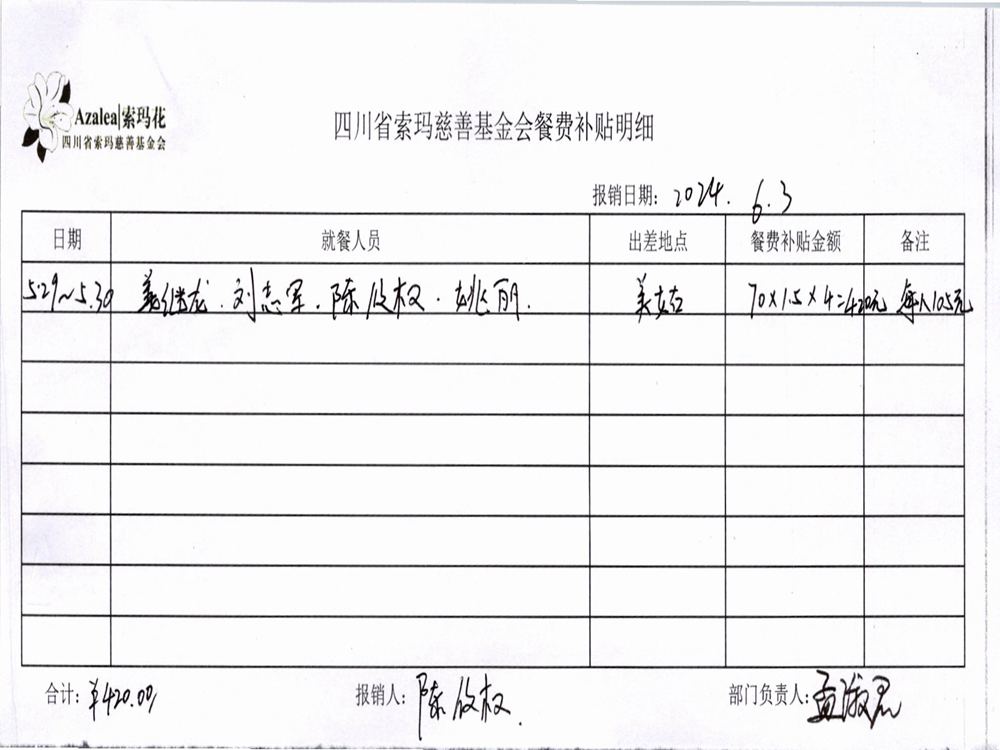 Azalea|索玛花
四川省索玛慈善基金会
四川省索玛慈善基金会餐费补贴明细
报销日期: 2024. 6.3
日期 就餐人员 出差地点 餐费补贴金额 备注
5.29~5.30 姜继龙.刘志军.陈 权.姚丽. 美姑 70×1.5×4=420元 每人105元
合计: ¥420.00 报销人: 陈 权. 部门负责人: 孟淑君